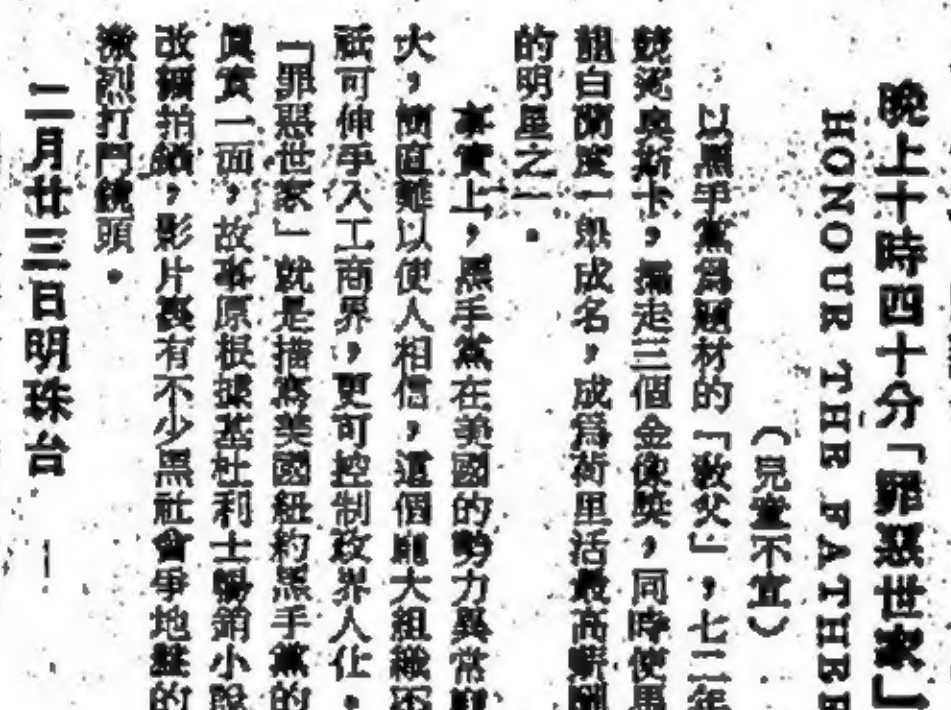 晚上十時四十分「罪惡世家」
HONOUR THE FATHER
（兒童不宜）
以黑手黨爲題材的「敎父」，七二年
競逐奧斯卡，捕走三個金像獎，同時使男
星白蘭度一舉成名，成爲荷里活最高薪酬
的明星之一。
事實上，黑手黨在美國的勢力異常龐
大，簡直難以使人相信，這個龐大組織不
祇可伸手入工商界，更可控制政界人仕。
「罪惡世家」就是描寫美國紐約黑手黨的
眞實一面，故事原根據基杜利士暢銷小說
改編拍攝，影片裏有不少黑社會爭地盤的
激烈打鬥鏡頭。
二月廿三日明珠台